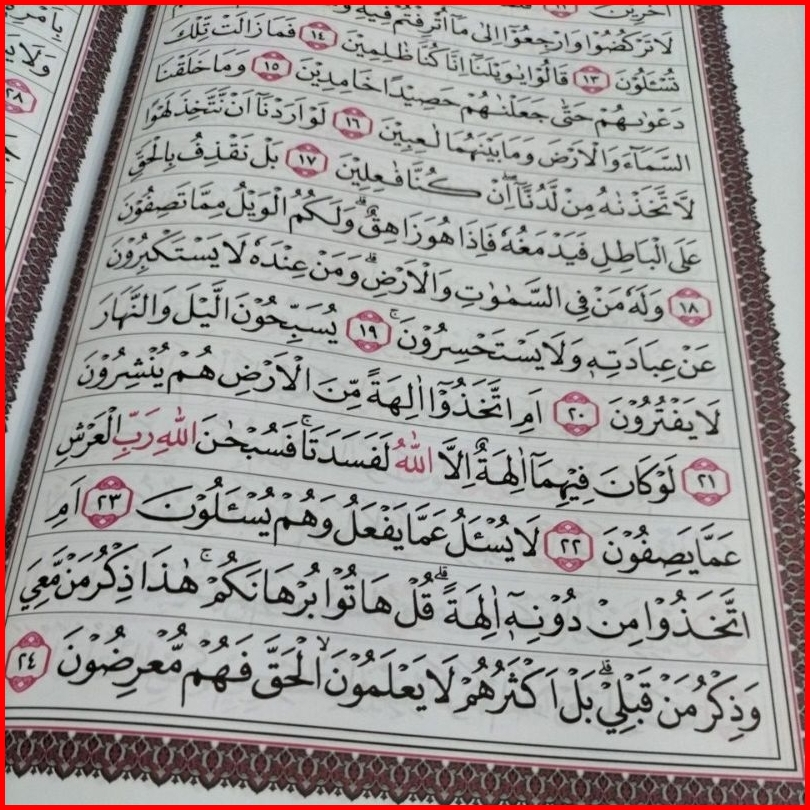 اٰخَرِيْنَ ١١ فَلَمَّآ
لَا تَرْكُضُوْا وَارْجِعُوْٓا اِلٰى مَآ اُتْرِفْتُمْ فِيْهِ
تُسْـَٔلُوْنَ ١٣ قَالُوْا يٰوَيْلَنَآ اِنَّا كُنَّا ظٰلِمِيْنَ ١٤ فَمَا زَالَتْ تِّلْكَ
دَعْوٰىهُمْ حَتّٰى جَعَلْنٰهُمْ حَصِيْدًا خَامِدِيْنَ ١٥ وَمَا خَلَقْنَا
السَّمَاۤءَ وَالْاَرْضَ وَمَا بَيْنَهُمَا لٰعِبِيْنَ ١٦ لَوْ اَرَدْنَآ اَنْ نَّتَّخِذَ لَهْوًا
لَّاتَّخَذْنٰهُ مِنْ لَّدُنَّآ ۖاِنْ كُنَّا فٰعِلِيْنَ ١٧ بَلْ نَقْذِفُ بِالْحَقِّ
عَلَى الْبَاطِلِ فَيَدْمَغُهٗ فَاِذَا هُوَ زَاهِقٌۗ وَلَكُمُ الْوَيْلُ مِمَّا تَصِفُوْنَ
١٨ وَلَهٗ مَنْ فِى السَّمٰوٰتِ وَالْاَرْضِۗ وَمَنْ عِنْدَهٗ لَا يَسْتَكْبِرُوْنَ
عَنْ عِبَادَتِهٖ وَلَا يَسْتَحْسِرُوْنَ ۚ ١٩ يُسَبِّحُوْنَ الَّيْلَ وَالنَّهَارَ
لَا يَفْتُرُوْنَ ٢٠ اَمِ اتَّخَذُوْٓا اٰلِهَةً مِّنَ الْاَرْضِ هُمْ يُنْشِرُوْنَ
٢١ لَوْ كَانَ فِيْهِمَآ اٰلِهَةٌ اِلَّا اللّٰهُ لَفَسَدَتَاۚ فَسُبْحٰنَ اللّٰهِ رَبِّ الْعَرْشِ
عَمَّا يَصِفُوْنَ ٢٢ لَا يُسْـَٔلُ عَمَّا يَفْعَلُ وَهُمْ يُسْـَٔلُوْنَ ٢٣ اَمِ
اتَّخَذُوْا مِنْ دُوْنِهٖٓ اٰلِهَةً ۗقُلْ هَاتُوْا بُرْهَانَكُمْۚ هٰذَا ذِكْرُ مَنْ مَّعِيَ
وَذِكْرُ مَنْ قَبْلِيْۗ بَلْ اَكْثَرُهُمْ لَا يَعْلَمُوْنَۙ الْحَقَّ فَهُمْ مُّعْرِضُوْنَ ٢٤